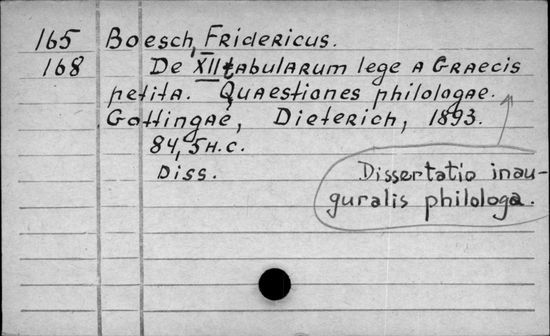 165 Boesch, Fridericus.
168 De XII tabularum lege a Graecis
petita. Quaestiones philologae.
Gottingae, Dieterich, 1893.
84, 5 H.C.
Diss.
Dissertatio inau-
guralis philologa.